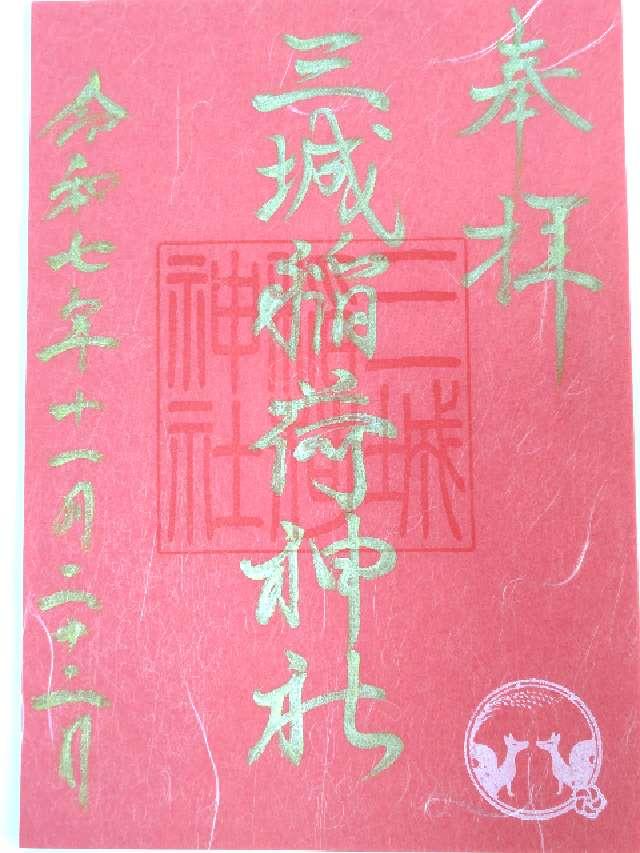 奉拝
三城稲荷神社
令和七年十一月二十二日
三城稲荷神社